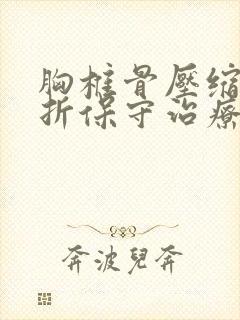 胸椎骨壓縮
折保守治療
奔波兒奔